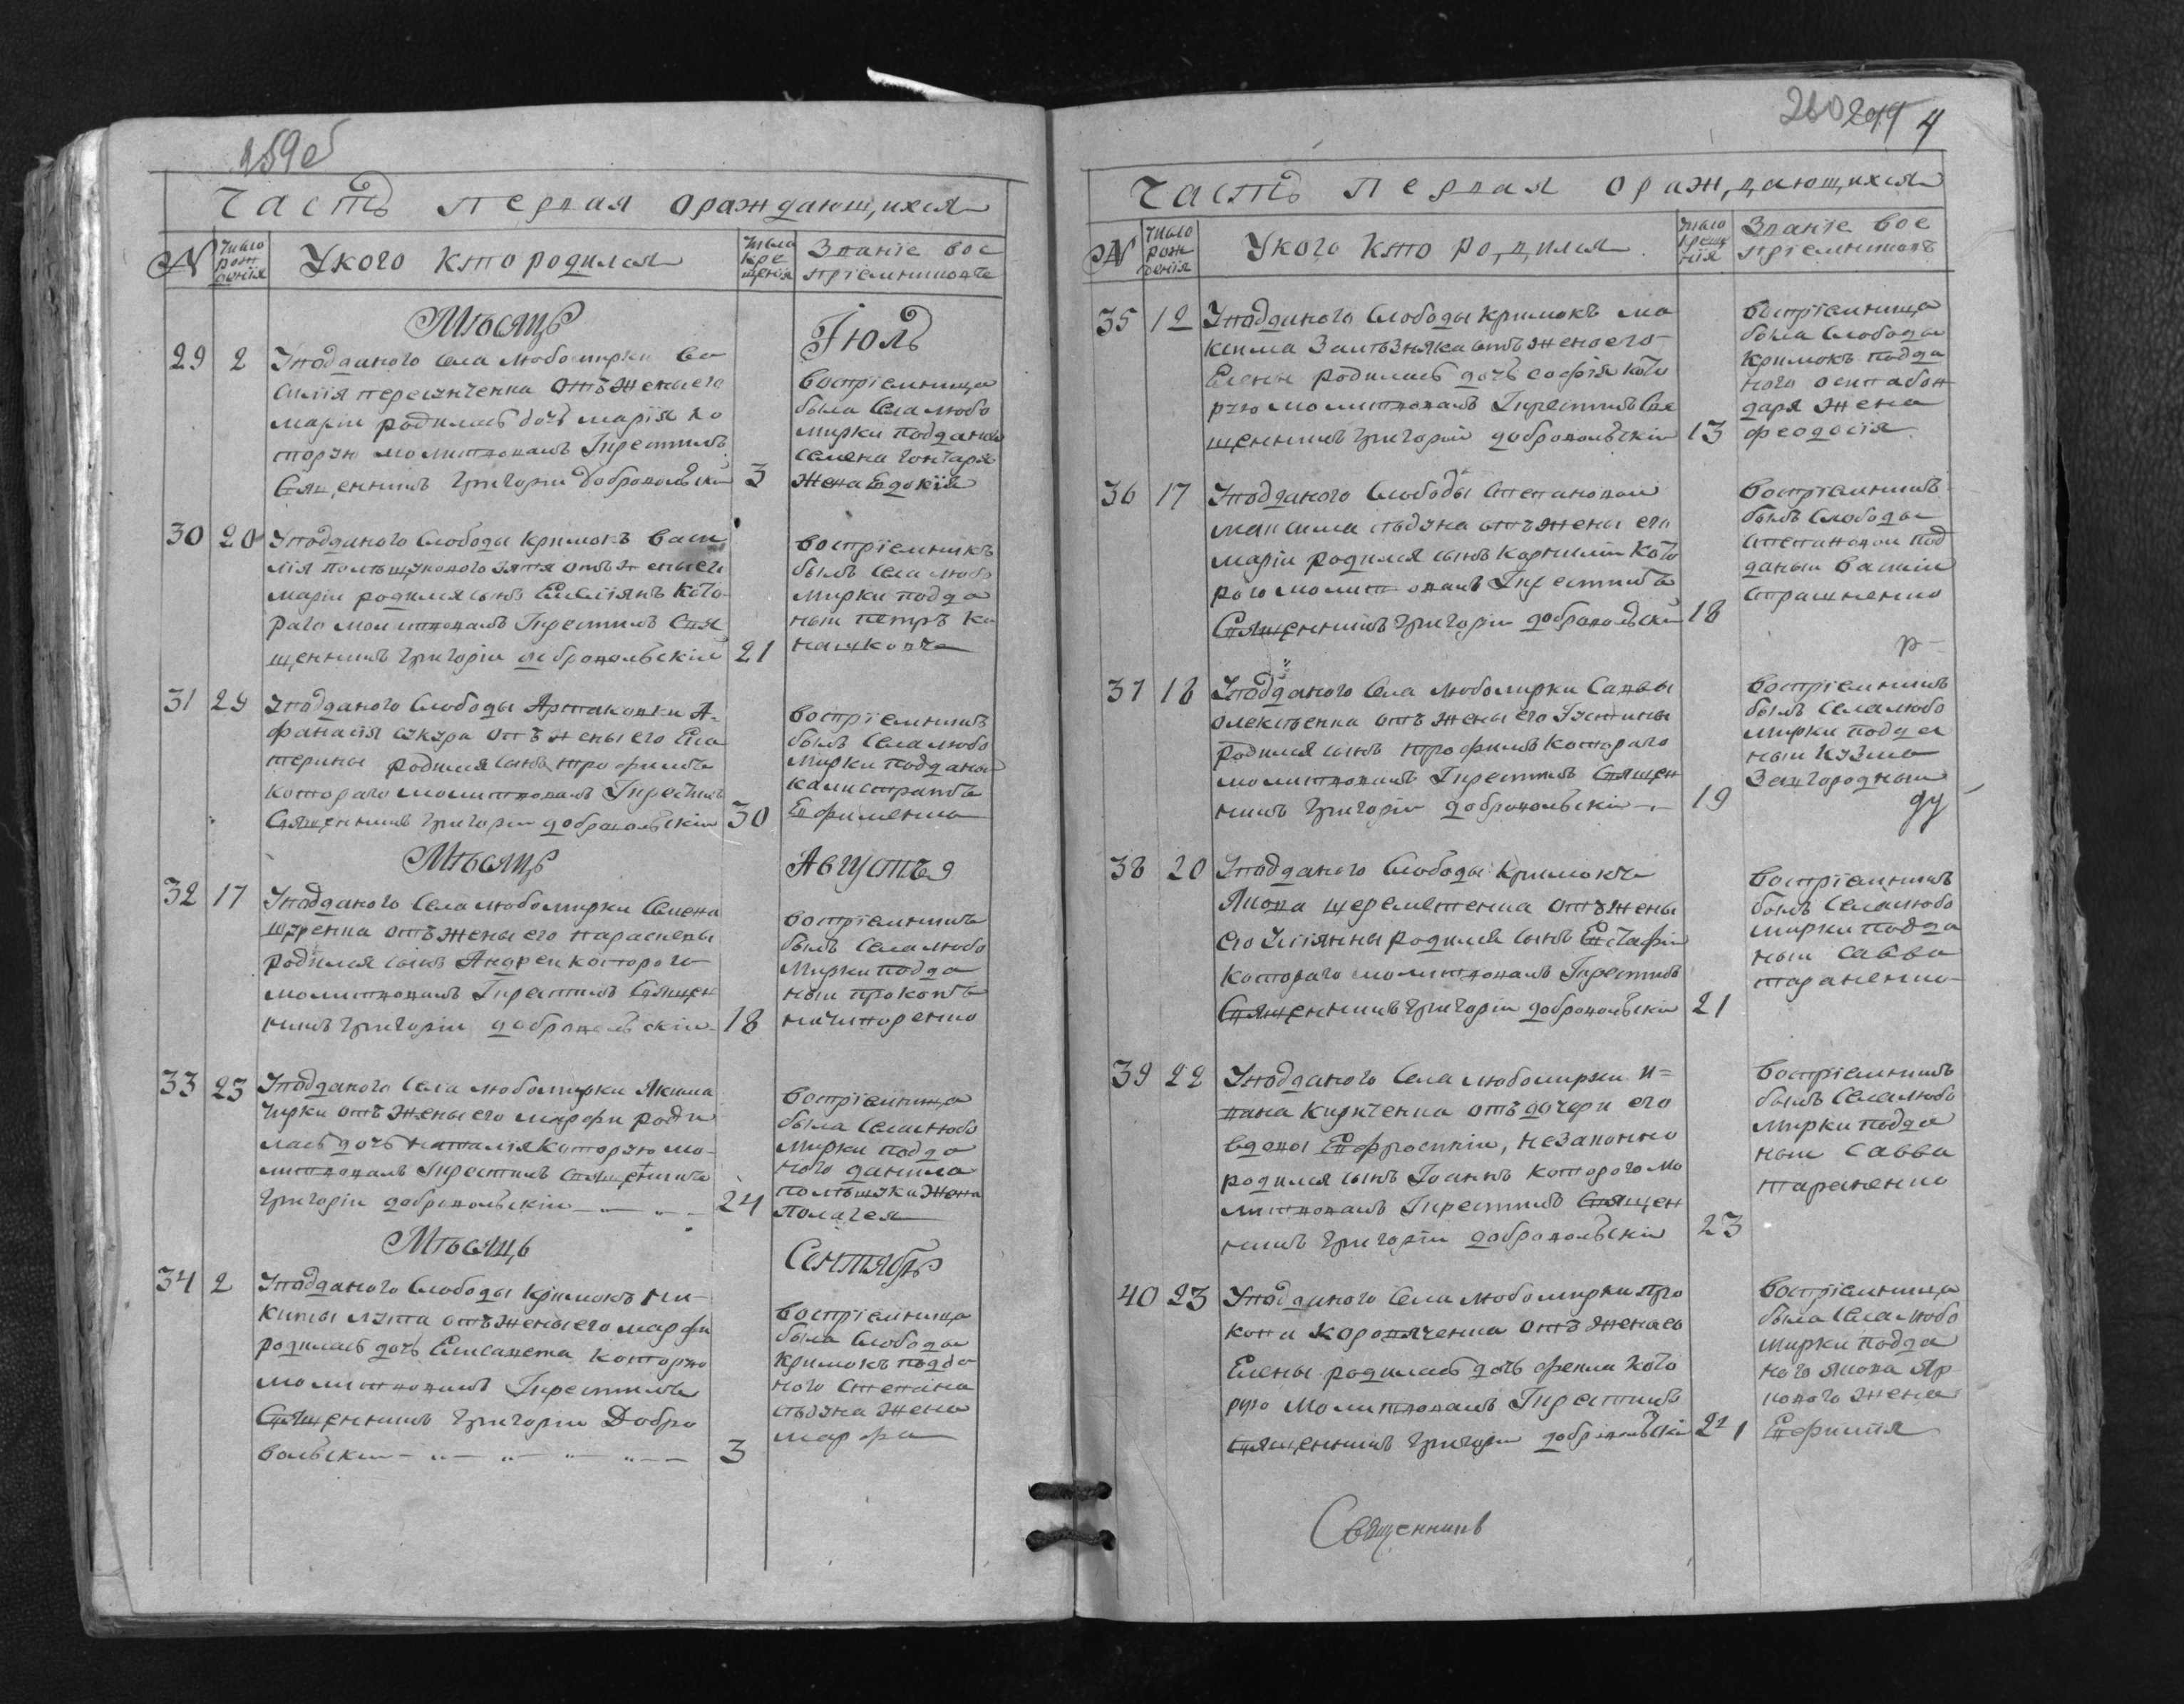 259об
Часть первая ораждающихся
№
число рождения
Укого кто родился
числа крещения
Званіе воспріемниковъ
Мѣсяцъ Іюль
29 2
Уподданого села Любомирки Ва
силія пересунченка отъ жены его
маріи родилась дочь марія ко
торую молитвовалъ Iкрестилъ
Священникъ Григорій Добровольскій 3
воспріемница
была села любо
мирки подданого
семена гончаря
жена Евдокія
30 20
Уподданого Слободы Кримокъ васи
лія полѣщукового зятя отъ жены его
маріи родился сынъ Емеліянъ кото
раго молитвовалъ Iкрестилъ Свя
щенникъ Григорій добровольскій 21
воспріемникъ
былъ села любо
мирки подда
ный петръ
31 29
Уподданого Слободы Артаковки А=
фанасія сукура отъ жены его Ека
терины родился сынъ трофимъ
котораго молитвовалъ Iкрестилъ
Священникъ Григорій добровольскій 30
воспріемникъ
былъ села любо
мирки подданый
калистратъ
Ефименко
Мѣсяцъ Августъ
32 17
Уподданого села любомирки Семена
щуренка отъ жены его параскевы
родился сынъ Андрей которого
молитвовалъ Iкрестилъ Священ
никъ Григорій добровольскій 18
воспріемникъ
былъ села любо
мирки подда
ный прокопъ
ничипоренко
33 23
Уподданого села любомирки Якима
Чирки отъ жены его марфи роди
лась дочь наталія которую мо
литвовалъ Iкрестилъ священникъ
Григорій добровольскій 24
воспріемница
была села любо
мирки подда
ного данила
полѣщука жена
Полагея
Мѣсяцъ Сентябрь
34 2
Уподданого Слободы Кримокъ Ни
киты лупа отъ жены его марфи
родилась дочь Елисавета которую
молитвовалъ Iкрестилъ
Священникъ Григорій Добро
вольскій 3
воспріемница
была Слободы
Кримокъ подда
ного Степана
стъдуна жена
марфа
260 299 4
Часть первая ораждающихся
№
число рожденія
Укого кто родился
число крещенія
Званіе воспріемниковъ
35 12
Уподданого Слободы Кримокъ ма
ксима Залѣзняка отъ жены его
Елены родилась дочь софія кото
рую молитвовалъ Iкрестилъ Свя
щенникъ Григорій добровольскій 13
воспріемница
была Слободы
Кримокъ подда
ного остапа бон
даря жена
феодосія
36 17
Уподданого Слободы Степановой
максима стъдуна отъ жены его
маріи родился сынъ корнилій кото
рого молитвовалъ Iкрестилъ
Священникъ Григорій добровольскій 18
воспріемникъ
былъ Слободы
Степановой под
даный василій
Страшненко
37 18
Уподданого села любомирки Саввы
олексѣенка отъ жены его Iустины
родился сынъ трофимъ котораго
молитвовалъ Iкрестилъ Священ
никъ Григорій добровольскій 19
воспріемникъ
былъ села любо
мирки подда
ный кузма
Завгородный
38 20
Уподданого Слободы Кримокъ
Якова шереметенка отъ жены
его Уліянны родился сынъ Евстафій
котораго молитвовалъ Iкрестилъ
Священникъ Григорій добровольскій 21
воспріемникъ
былъ села любо
мирки подда
ный савва
тараненко
39 22
Уподданого села любомирки и=
вана кириченка отъ дочери его
вдовы Евфросиніи, незаконно
родился сынъ Iоаннъ которого мо
литвовалъ Iкрестилъ Священ
никъ Григорій добровольскій 23
воспріемникъ
былъ села любо
мирки подда
ный савва
тараненко
40 23
Уподданого села любомирки про
копа короваченка отъ жены его
Елены родилась дочь фекла кото
рую молитвовалъ Iкрестилъ
священникъ Григорій добровольскій 24
воспріемница
была села любо
мирки подда
ного якова яр
кового жена
Евфимія
Священникъ